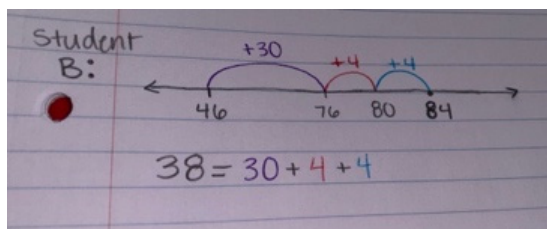 Student
B:
+30 +4 +4
46 76 80 84
38 = 30 + 4 + 4